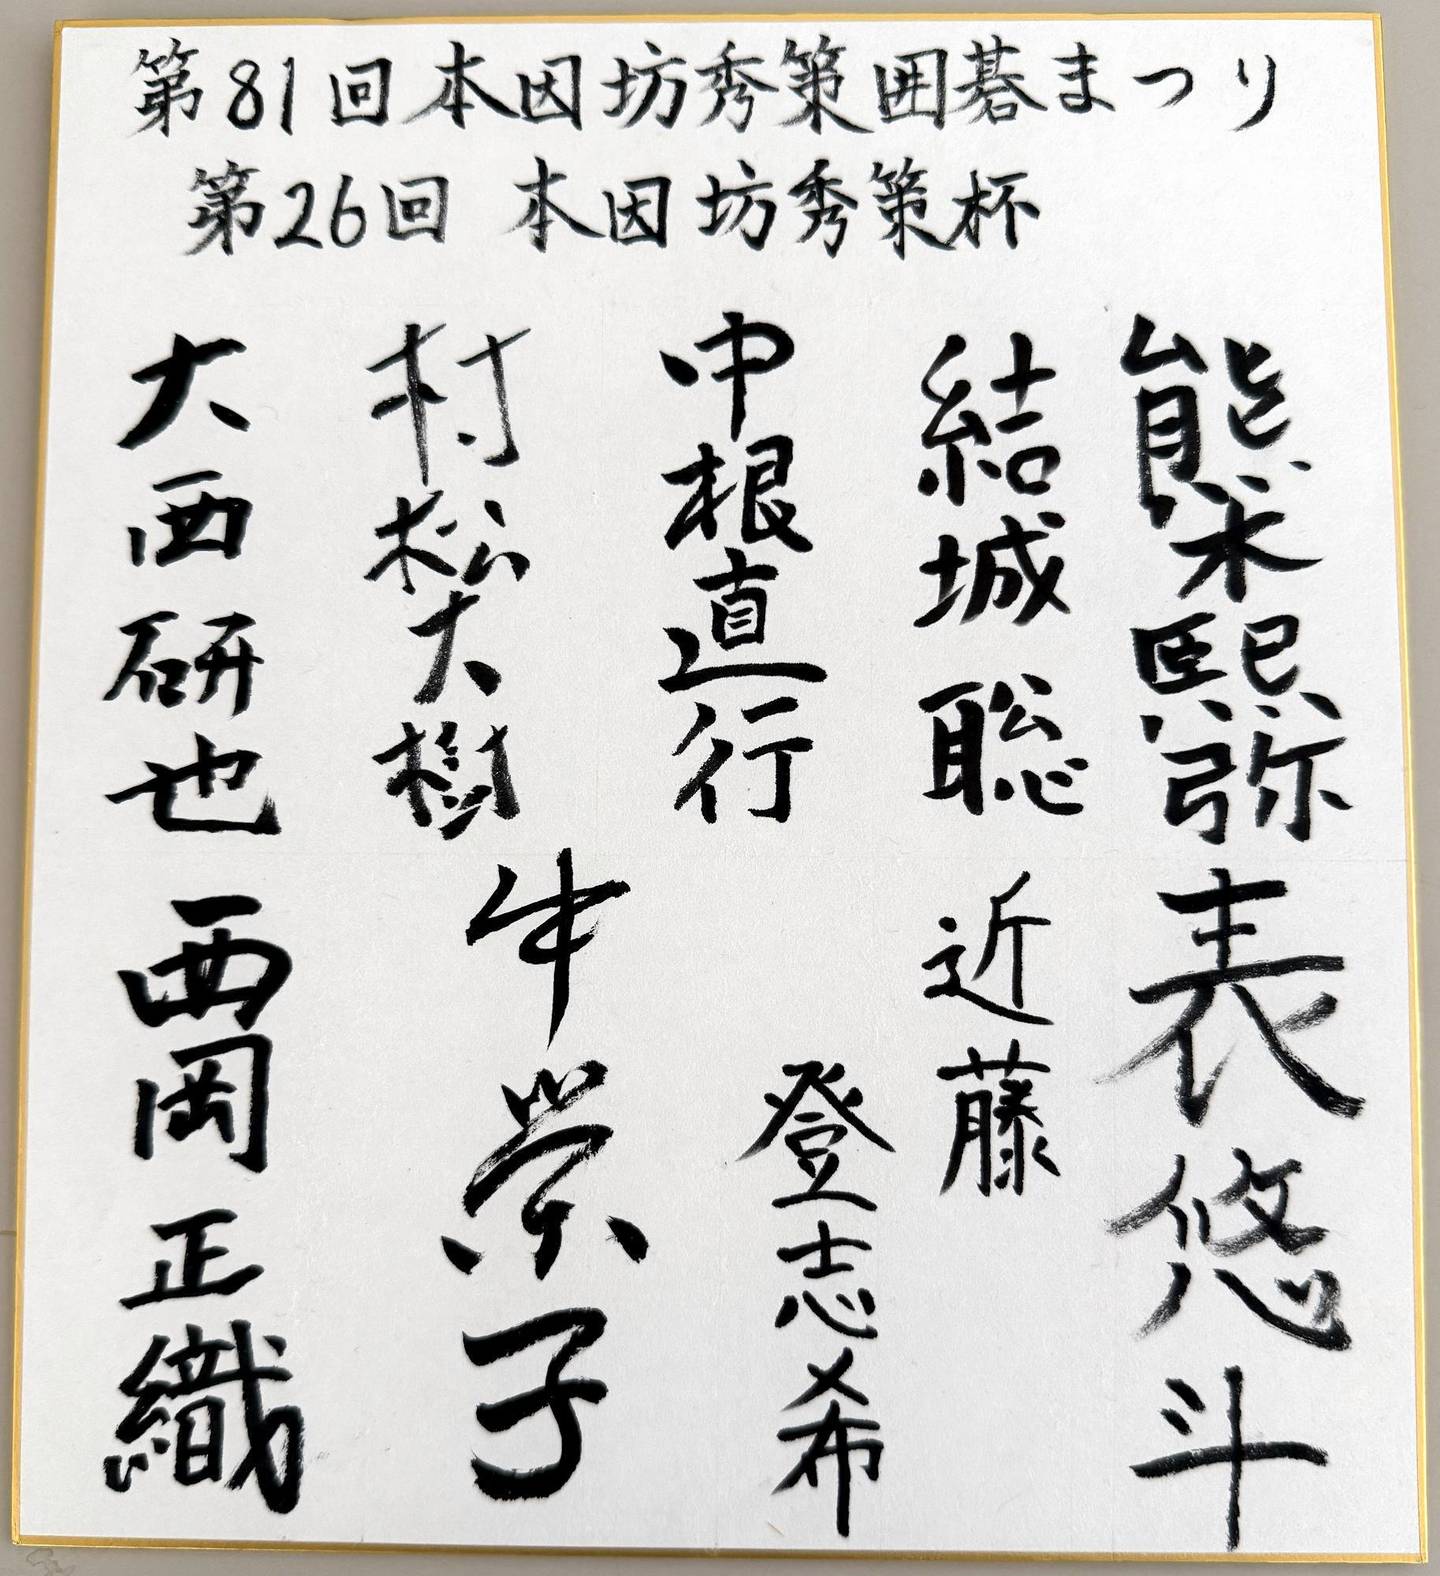 第81回本因坊秀策囲碁まつり
第26回 本因坊秀策杯
熊木熙弥
表悠斗
結城聡
近藤登志希
中根直行
村松大樹
牛栄子
大西研也
西岡正織